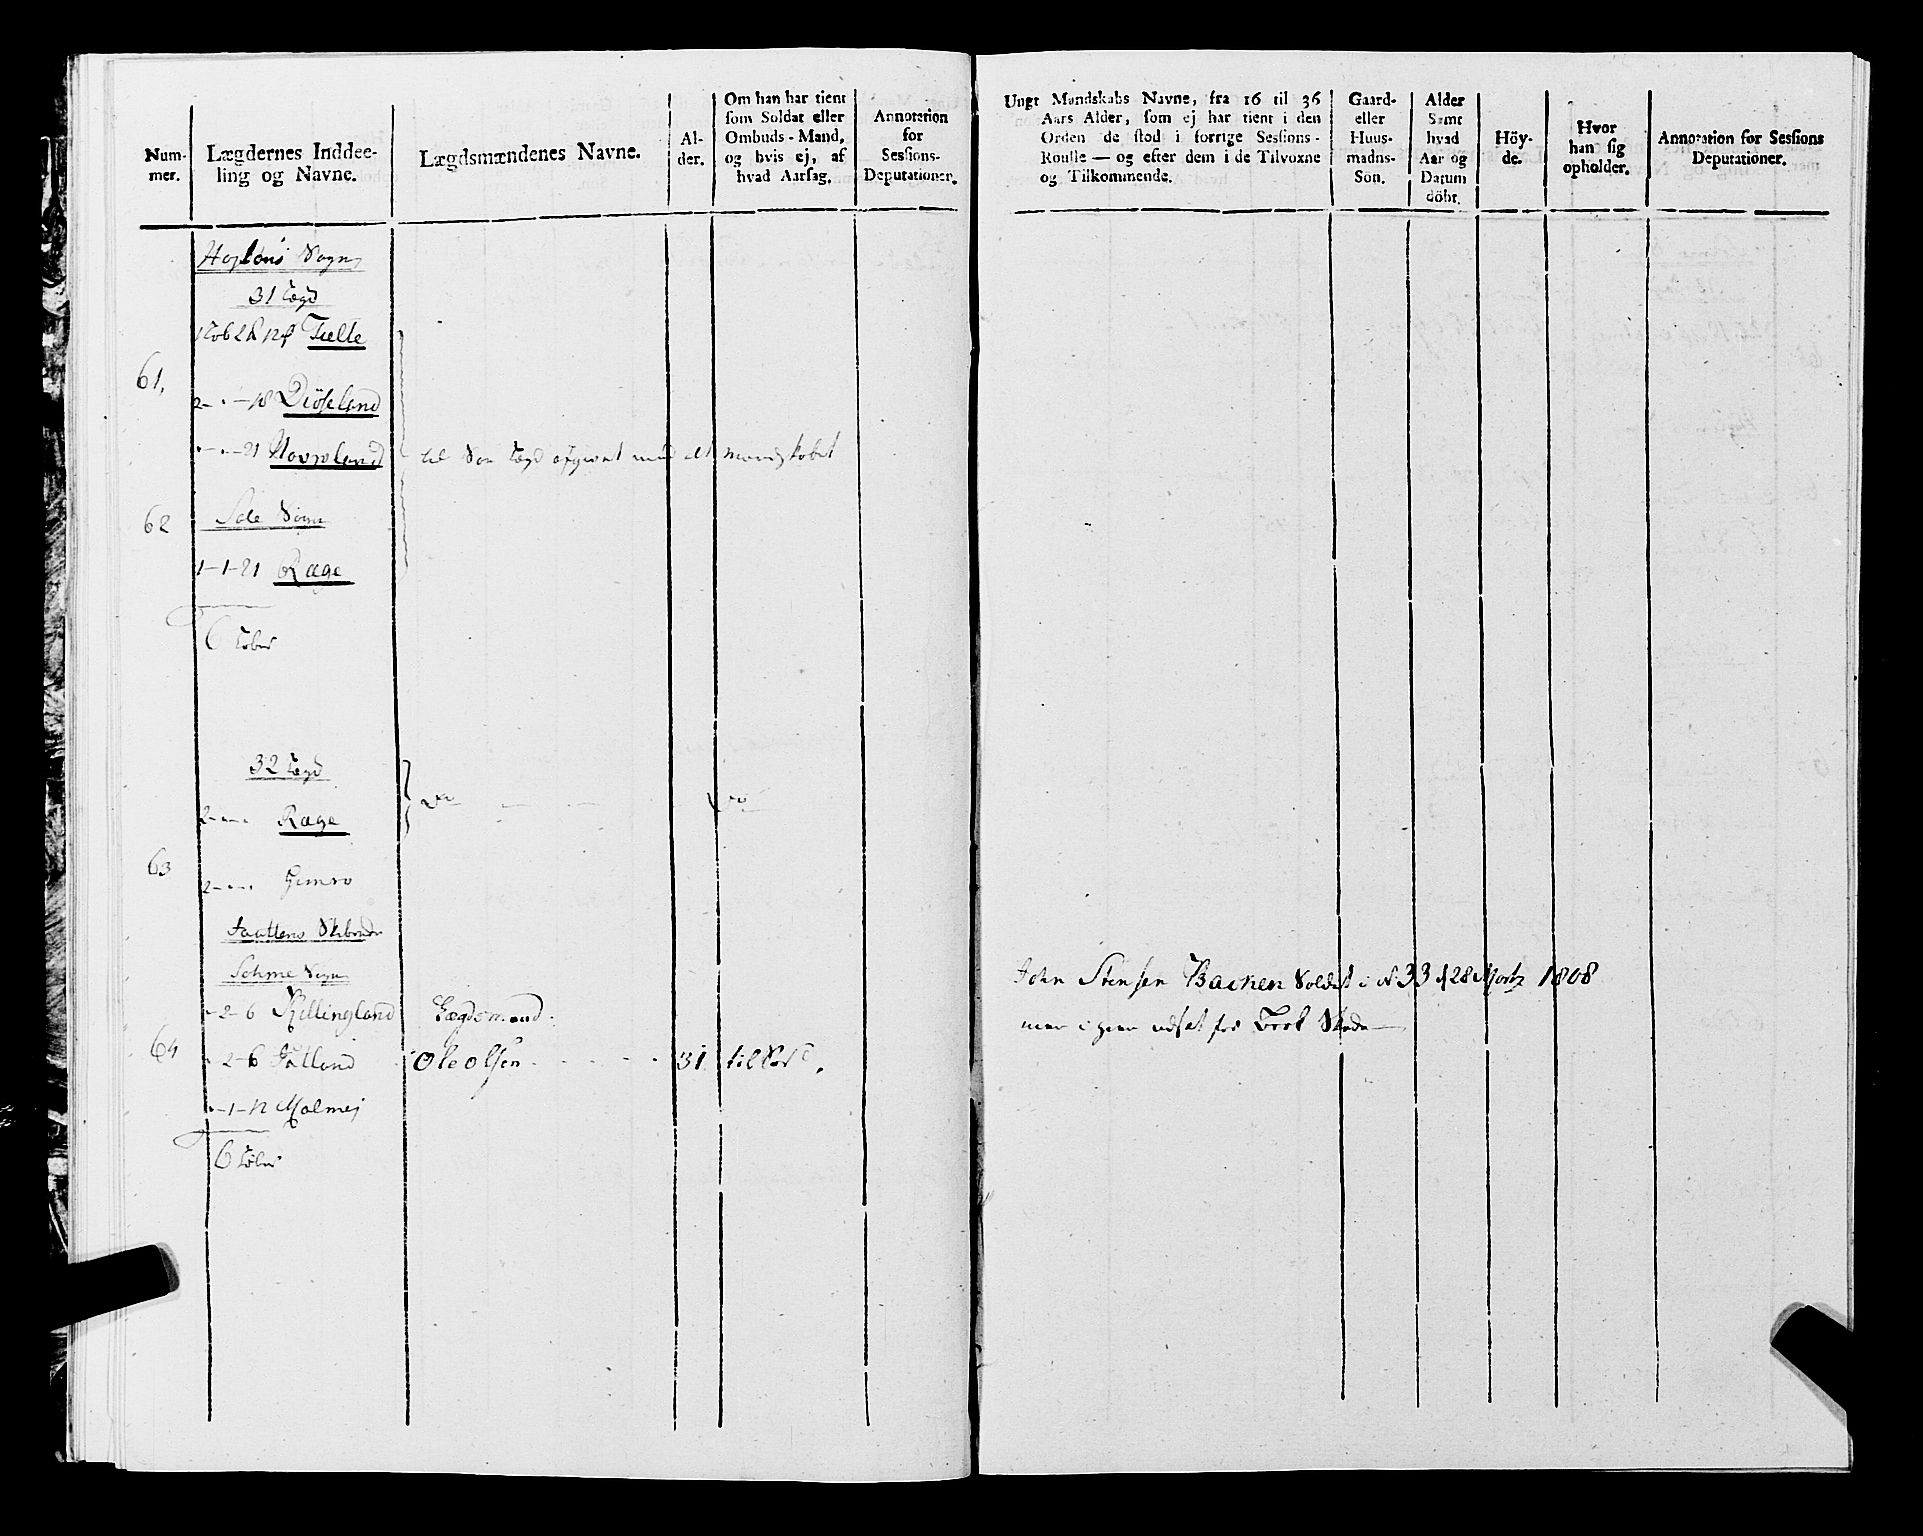 Num-
mer.
Lægdernes Inddee-
ling og Navne.
Lægdsmændenes Navne.
Al-
der.
Om han har tient
som Soldat eller
Ombuds-Mand,
og hvis ej, af
hvad Aarsag.
Annotation
for
Sessions-
Deputationer.
Höylans Sogn
31 Lægd
61,
Tielte
2 - " - 18 Diöseland
" - " - 21 Hoveland
til Søe Lægd afgivet med alt mandskabet
62
Sole Sogn
1 - 1 - 21 Ræge
6 Løber
32 Lægd
2 - " - " Ræge
Do
Do
63
2 - " - " Gimro
Jaattens Skibrede
Sohme Sogn
" - 2 - 6 Killingland
Lægdsmand
64
" - 2 - 6 Jatland
Ole Olsen
31
" - 1 - 12 Malmej
6 Løber
Ungt Mandskabs Navne, fra 16 til 36
Aars Alder, som ej har tient i den
Orden de stod i forrige Sessions-
Roulle — og efter dem i de Tilvoxne
og Tilkommende.
Gaard-
eller
Huus-
mands-
Sön.
Alder
Samt
hvad
Aar og
Datum
döbt.
Höy-
de.
Hvor
han sig
opholder.
Annotation for Sessions
Deputationer.
John Stensen Backen Soldat i N 33 d 28 Martz 1808
men igien udsat for